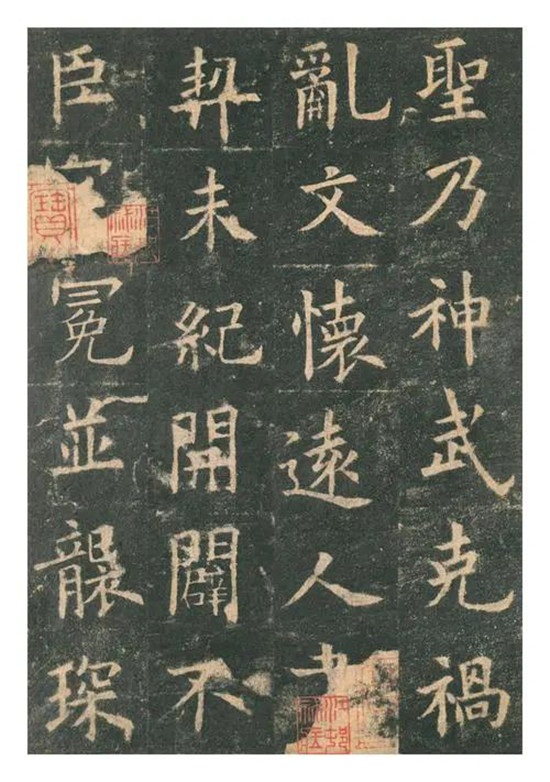 聖乃神武克禍
亂文懷遠人
契未紀開闢不
臣冠冕並襲琛